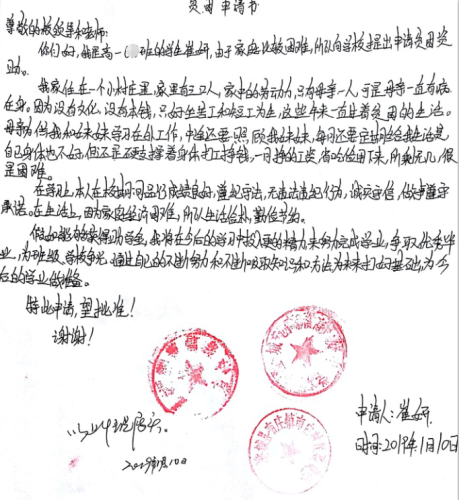 贫困申请书
尊敬的校领导和老师:
你们好,我是高一(班的学生崔妍,由于家庭比较困难,所以向学校提出申请贫困资
助。
我家住在一个小村庄里,家里有三口人,家中的劳动力,只有母亲一人,可是母亲一直有病
在身。因为没有文化,没有本钱,只好坐苦工和短工为生,这些年来一直过着贫困的生活。
母亲为供我和妹妹学习在外工作,中途还要照顾我妹妹,每月还要定期给我生活费,
自己身体也不好,但还是支撑着身体打工挣钱,一月挣的工资,省吃俭用下来,所剩无几,很
是困难。
在学习上,本人在校期间品行成绩良好,遵纪守法,无违法违纪行为,诚实守信,做事遵守
承诺。在生活上,因为家庭经济困难,所以生活俭朴,勤俭节约。
假如能够获得助学金,我将在今后的学习中投入更的精力来努力完成学业,争取优秀毕
业,为班级学校争光,通过自己的不断努力和不断吸取知识和方法为未来打好基础,为今
后的学业做准备。
特此申请,望批准!
谢谢!
以上情况属实。
2019年1月10日
申请人:崔妍
时间:2019年1月10日